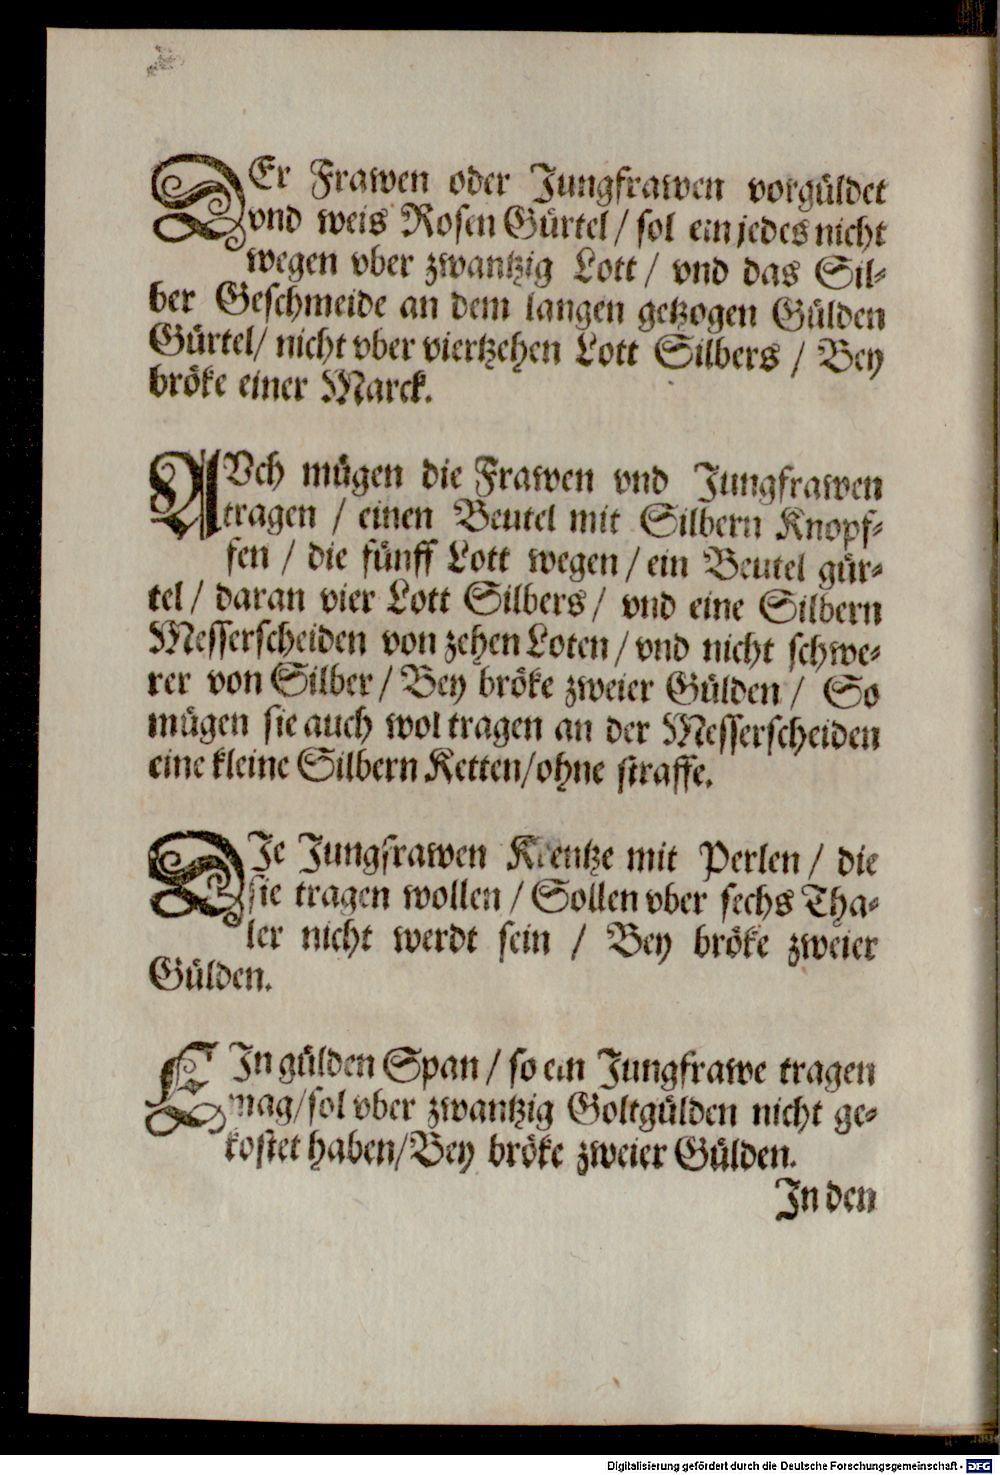 DEr Frawen oder Jungfrawen vorgüldet
vnd weis Rosen Gürtel / sol ein jedes nicht
wegen vber zwantzig Lott / vnd das Sil-
ber Geschmeide an dem langen getzogen Gülden
Gürtel / nicht vber viertzehen Lott Silbers / Bey
bröke einer Marck.
AVch mügen die Frawen vnd Jungfrawen
tragen / einen Beutel mit Silbern Knopf-
fen / die fünff Lott wegen / ein Beutel gür-
tel / daran vier Lott Silbers / vnd eine Silbern
Messerscheiden von zehen Loten / vnd nicht schwe-
rer von Silber / Bey bröke zweier Gülden / So
mügen sie auch wol tragen an der Messerscheiden
eine kleine Silbern Ketten / ohne straffe.
DIe Jungfrawen Krentze mit Perlen / die
sie tragen wollen / Sollen vber sechs Tha-
ler nicht werdt sein / Bey bröke zweier
Gülden.
EIn gülden Span / so ein Jungfrawe tragen
mag / sol vber zwantzig Goltgülden nicht ge-
kostet haben / Bey bröke zweier Gülden.
In den
Digitalisierung gefördert durch die Deutsche Forschungsgemeinschaft - DFG